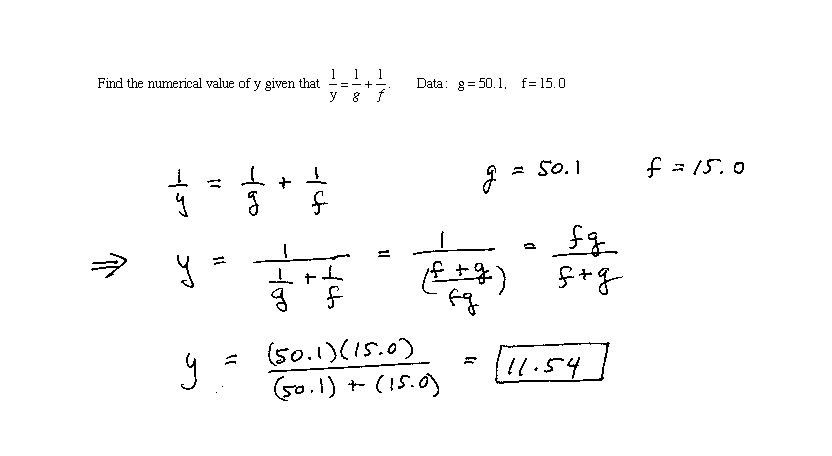 Find the numerical value of y given that 1/y = 1/g + 1/f. Data: g = 50.1, f = 15.0
1/y = 1/g + 1/f g = 50.1 f = 15.0
⇒ y = 1/(1/g + 1/f) = 1/((f+g)/fg) = fg/(f+g)
y = (50.1)(15.0)/((50.1) + (15.0)) = 11.54